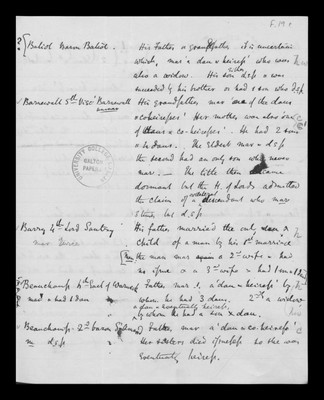 Baliol Baron Baliol.
His Father or grandfather it is uncertain
which, mar a dau & heiress who was
also a widow. His son dsp & was
succeeded by his brother or had 1 son who dsp
Barnewall 5th Visct Barnewall
His grandfather mar one of the daus
& coheiresses. Her mother was also one
of the daus & co-heiresses. He had 2 sons
& 4 daus. The eldest mar & dsp
the second had an only son who never
mar. — The title then became
dormant but the H. of Lords admitted
the claim of a collateral descendent who mar
3 times but dsp
UNIVERSITY COLLEGE
GALTON
PAPERS
Barry 4th Lord Santry
mar twice
His father married the only dau &
child of a man by his 1st marriage
the man mar again a 2nd wife & had
no issue & a 3rd wife & had 1 ma
Beauchamp 4th Earl of Warwick
mar & had 1 dau
Father mar 1, a dau & heiress by
whom he had 3 daus, 2nd a widow
a dau & eventually heiress,
by whom he had a son & dau.
Beauchamp 2nd baron
m dsp
Father mar a dau & co.heiress
Her sisters died issueless so she was
eventually heiress.